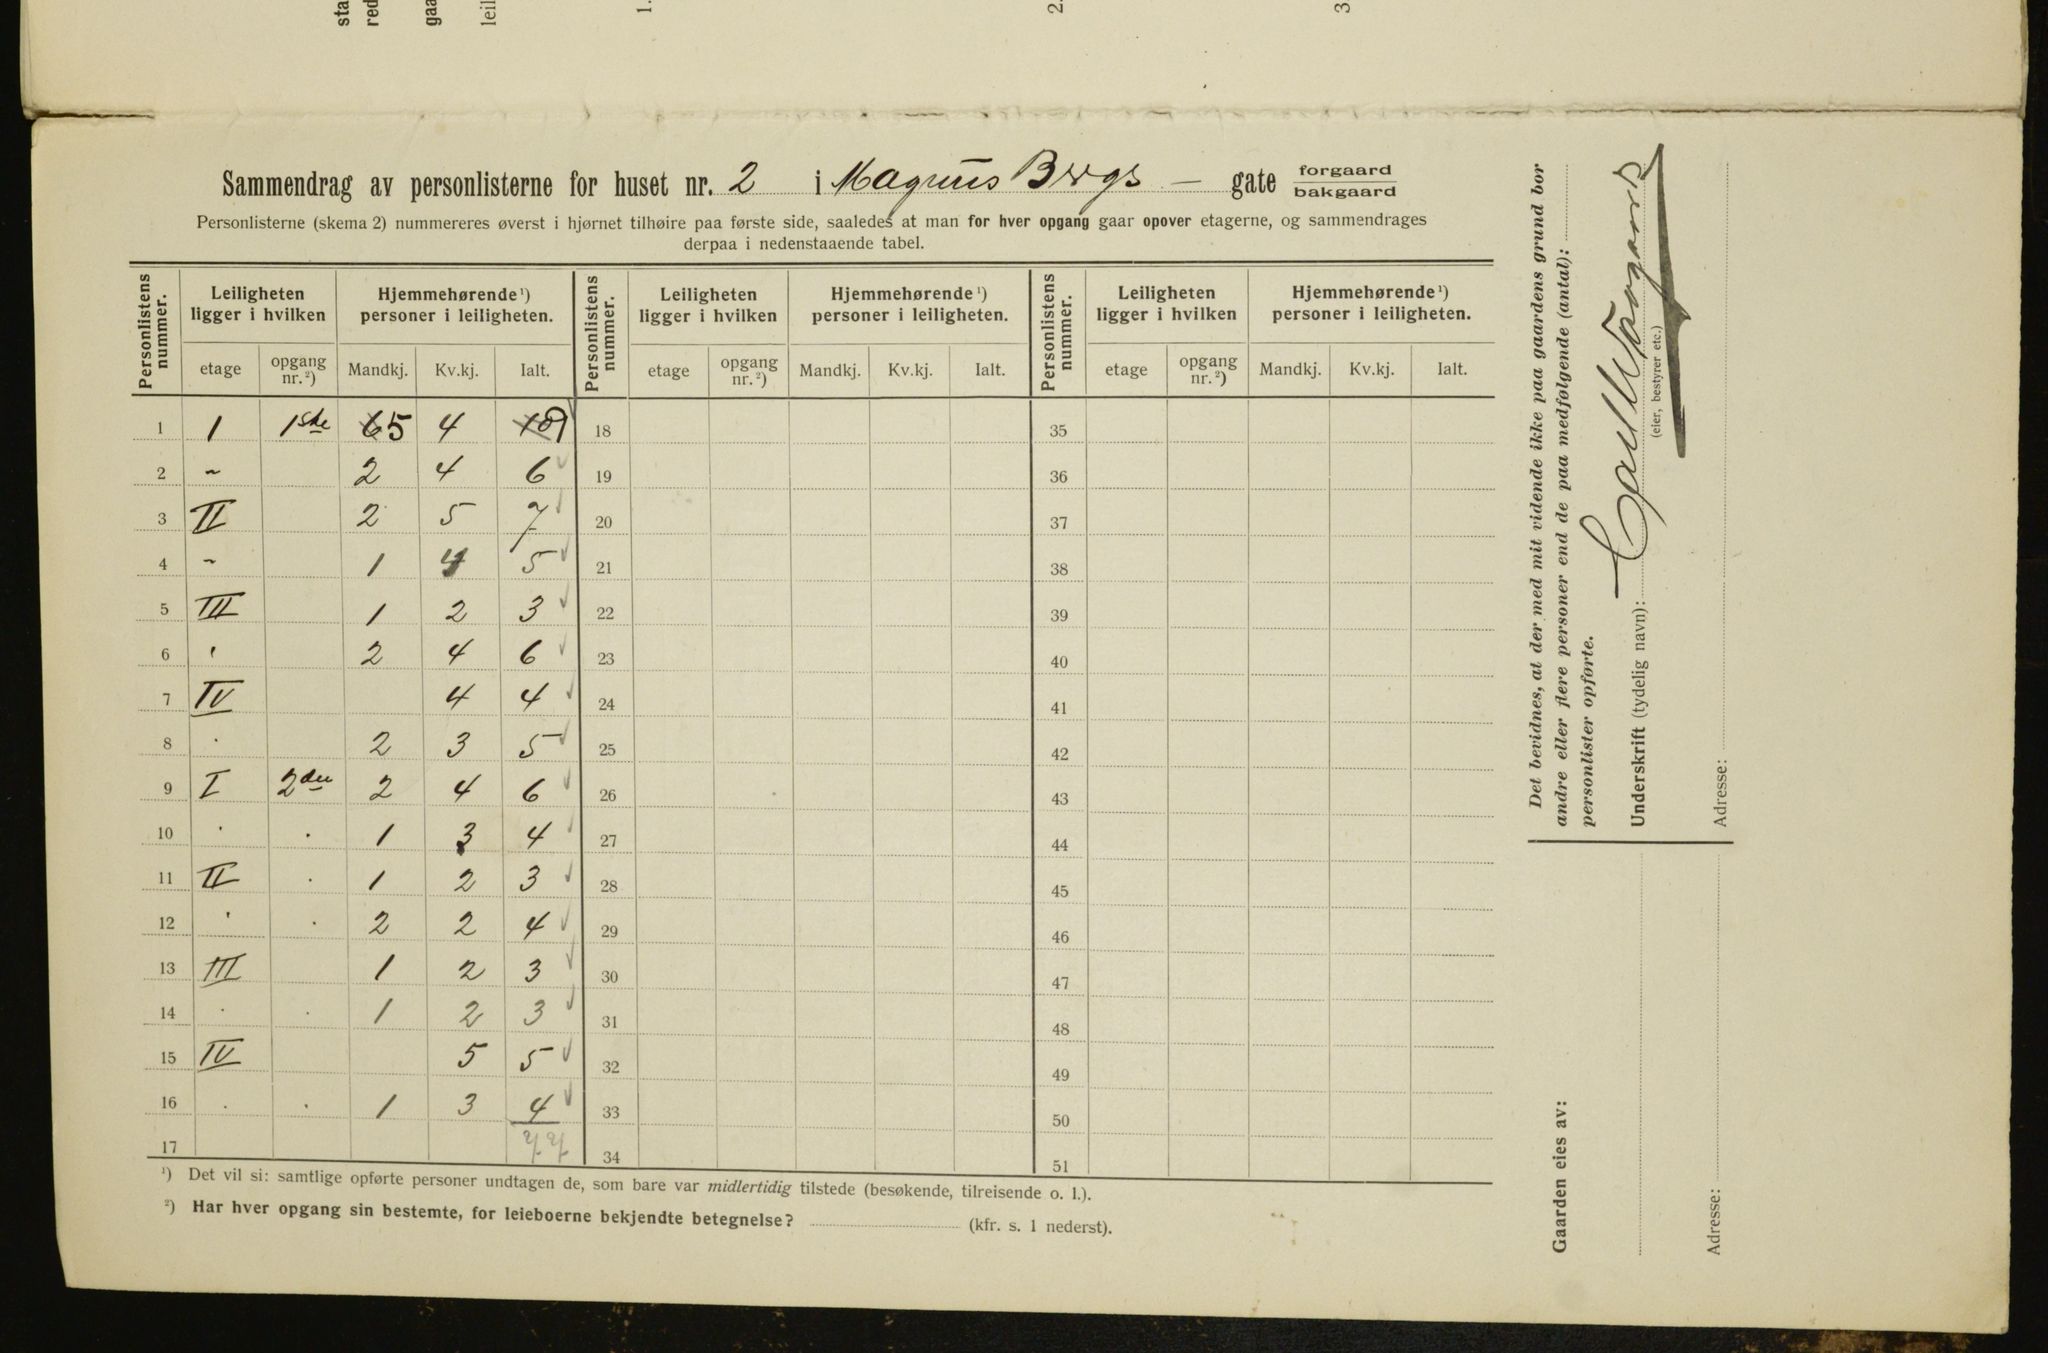 sta
red
gaa
leil
1.
2.
3
Sammendrag av personlisterne for huset nr. 2 i Magnus Bergs — gate forgaard
bakgaard
Personlisterne (skema 2) nummereres øverst i hjørnet tilhøire paa første side, saaledes at man for hver opgang gaar opover etagerne, og sammendrages
derpaa i nedenstaaende tabel.
Personlistens nummer. Leiligheten ligger i hvilken Hjemmehørende ¹) personer i leiligheten. Personlistens nummer. Leiligheten ligger i hvilken Hjemmehørende ¹) personer i leiligheten. Personlistens nummer. Leiligheten ligger i hvilken Hjemmehørende ¹) personer i leiligheten.
etage opgang nr. ²) Mandkj. Kv.kj. Ialt. etage opgang nr. ²) Mandkj. Kv.kj. Ialt. etage opgang nr. ²) Mandkj. Kv.kj. Ialt.
1 1 1ste 6 5 4 10 9 18 35
2 ~ 2 4 6 19 36
3 II 2 5 7 20 37
4 ~ 1 4 5 21 38
5 III 1 2 3 22 39
6 ' 2 4 6 23 40
7 IV 4 4 24 41
8 . 2 3 5 25 42
9 I 2den 2 4 6 26 43
10 . . 1 3 4 27 44
11 II . 1 2 3 28 45
12 ' . 2 2 4 29 46
13 III 1 2 3 30 47
14 . . 1 2 3 31 48
15 IV 5 5 32 49
16 . . 1 3 4 33 50
17 77 34 51
¹) Det vil si: samtlige opførte personer undtagen de, som bare var midlertidig tilstede (besøkende, tilreisende o. l.).
²) Har hver opgang sin bestemte, for leieboerne bekjendte betegnelse? (kfr. s. 1 nederst).
Det bevidnes, at der med mit vidende ikke paa gaardens grund bor
andre eller flere personer end de paa medfølgende (antal):
personlister opførte.
Underskrift (tydelig navn): Carl
(eier, bestyrer etc.)
Adresse:
Gaarden eies av:
Adresse: